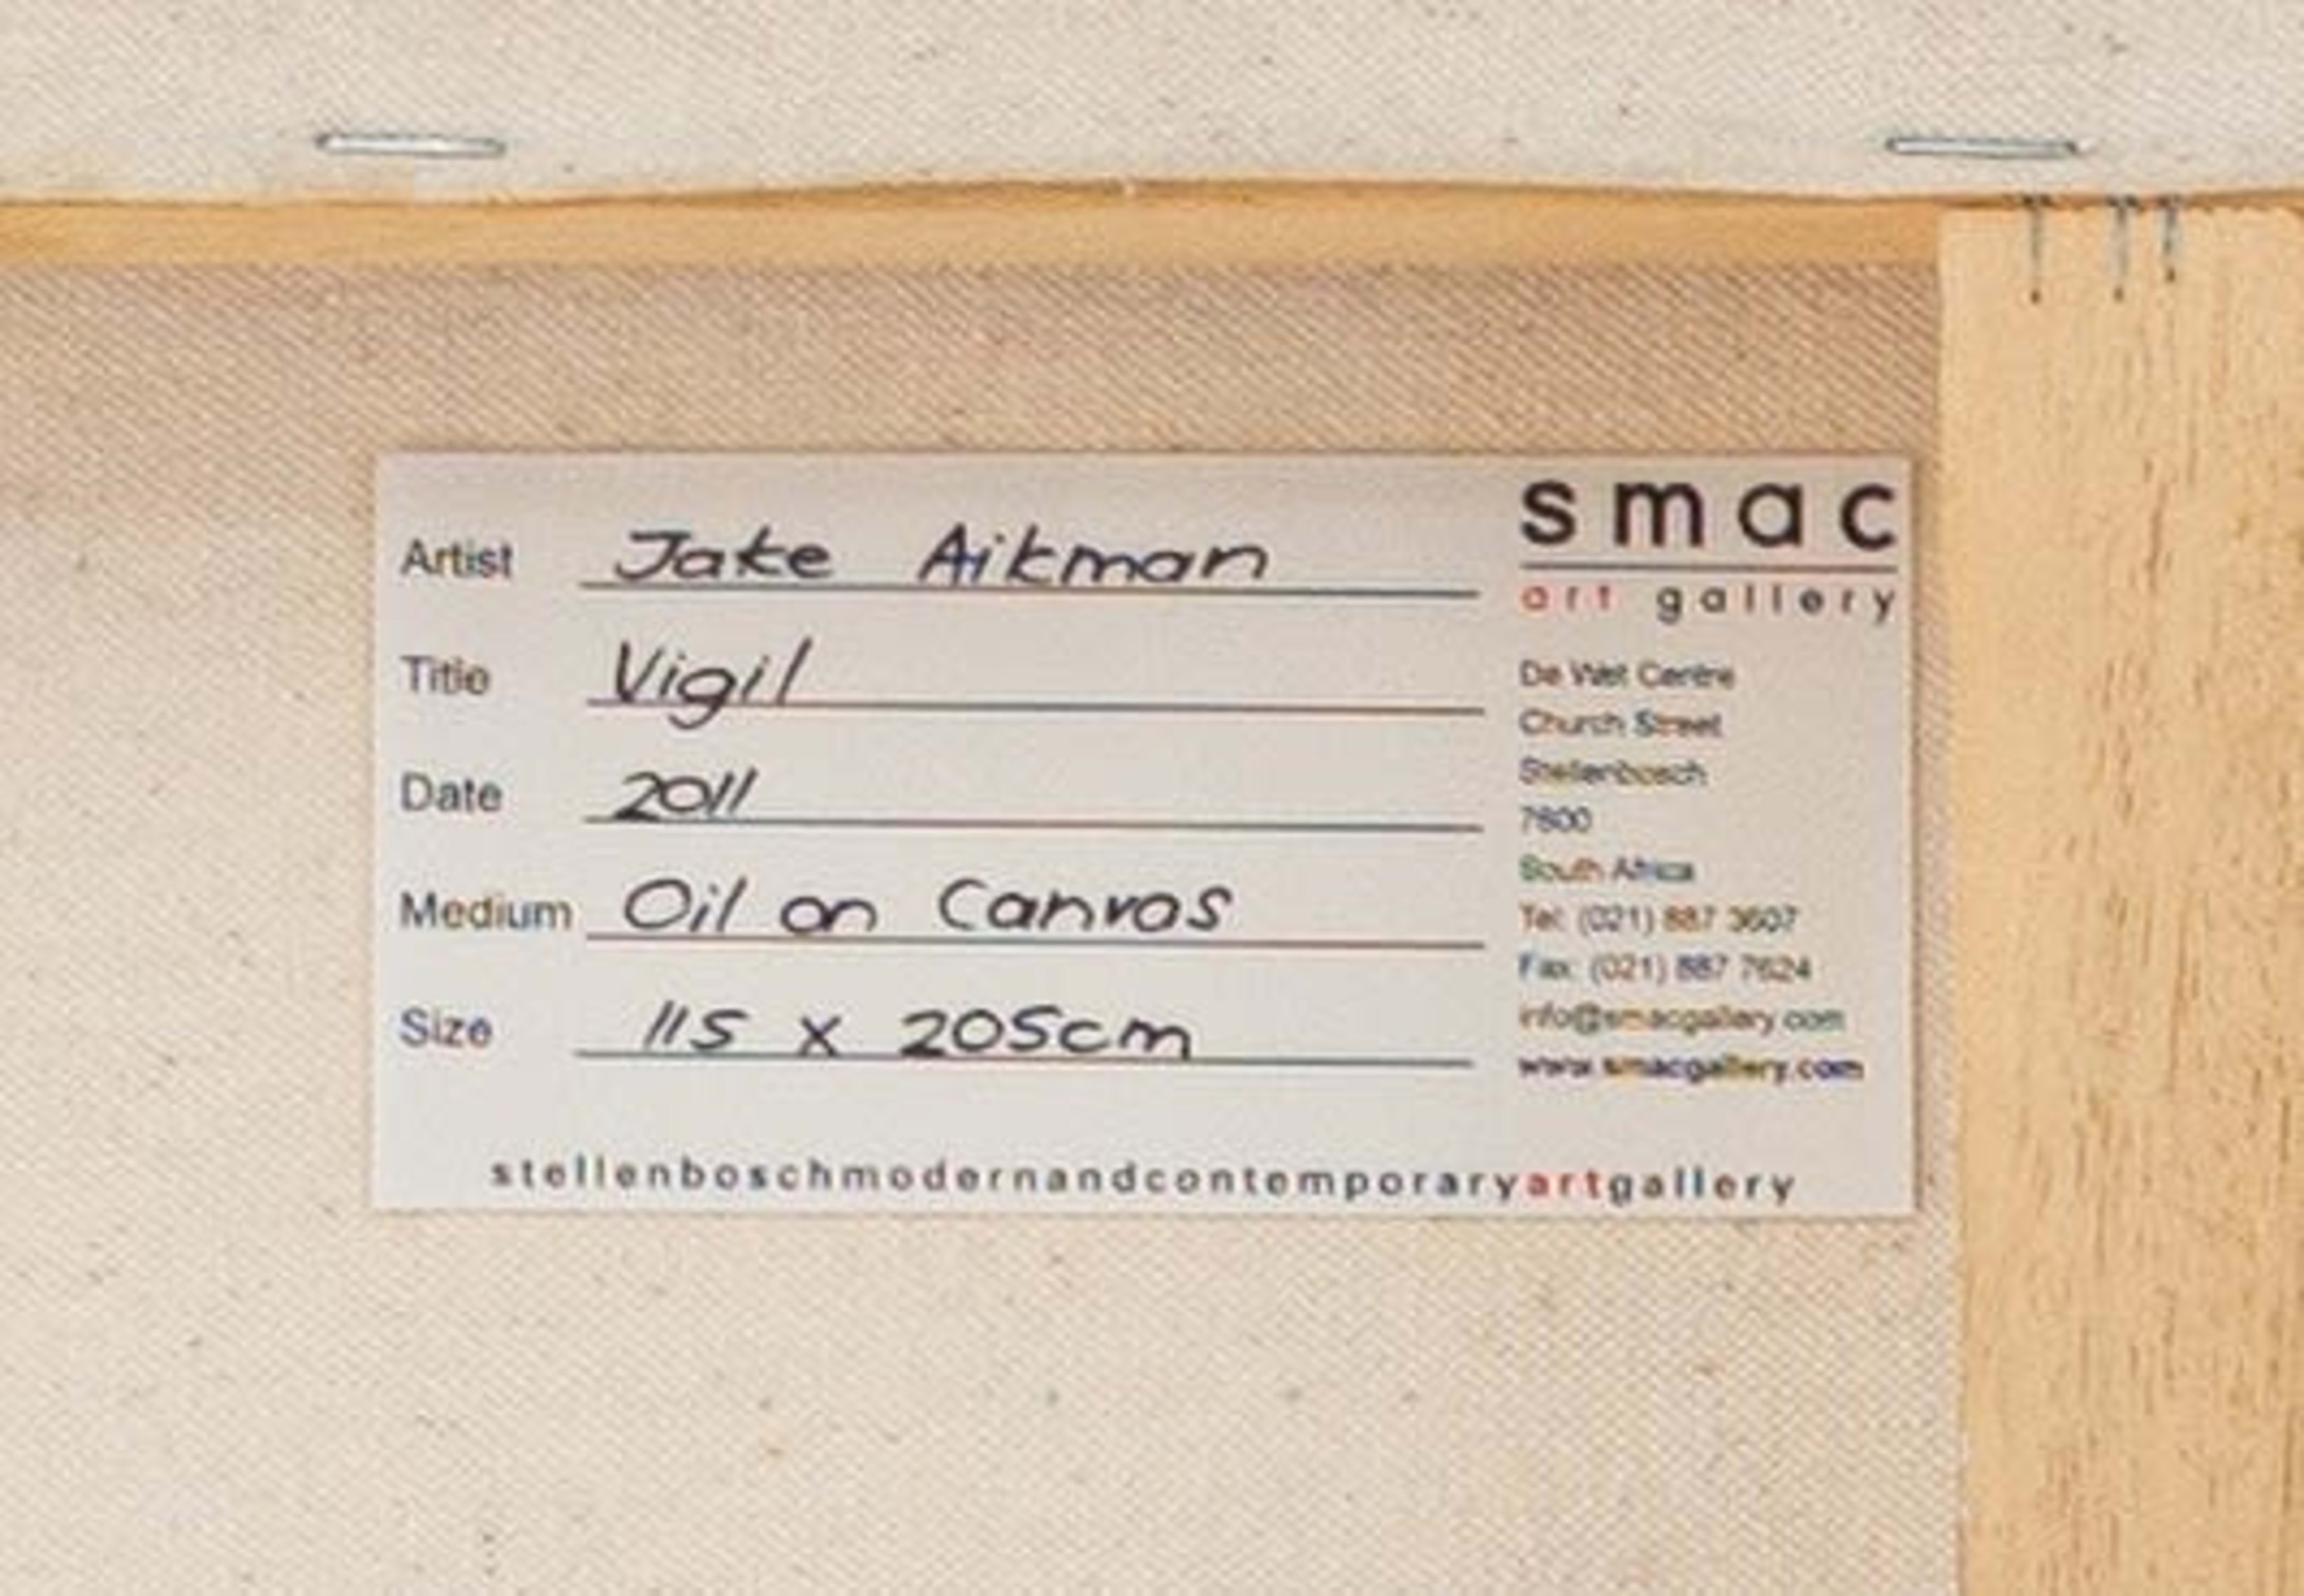 Artist Jake Aikman
Title Vigil
Date 2011
Medium Oil on Canvas
Size 115 x 205cm
smac
art gallery
De Wet Centre
Church Street
Stellenbosch
7600
South Africa
Tel: (021) 887 3607
Fax: (021) 887 7624
info@smacgallery.com
www.smacgallery.com
stellenboschmodernandcontemporaryartgallery